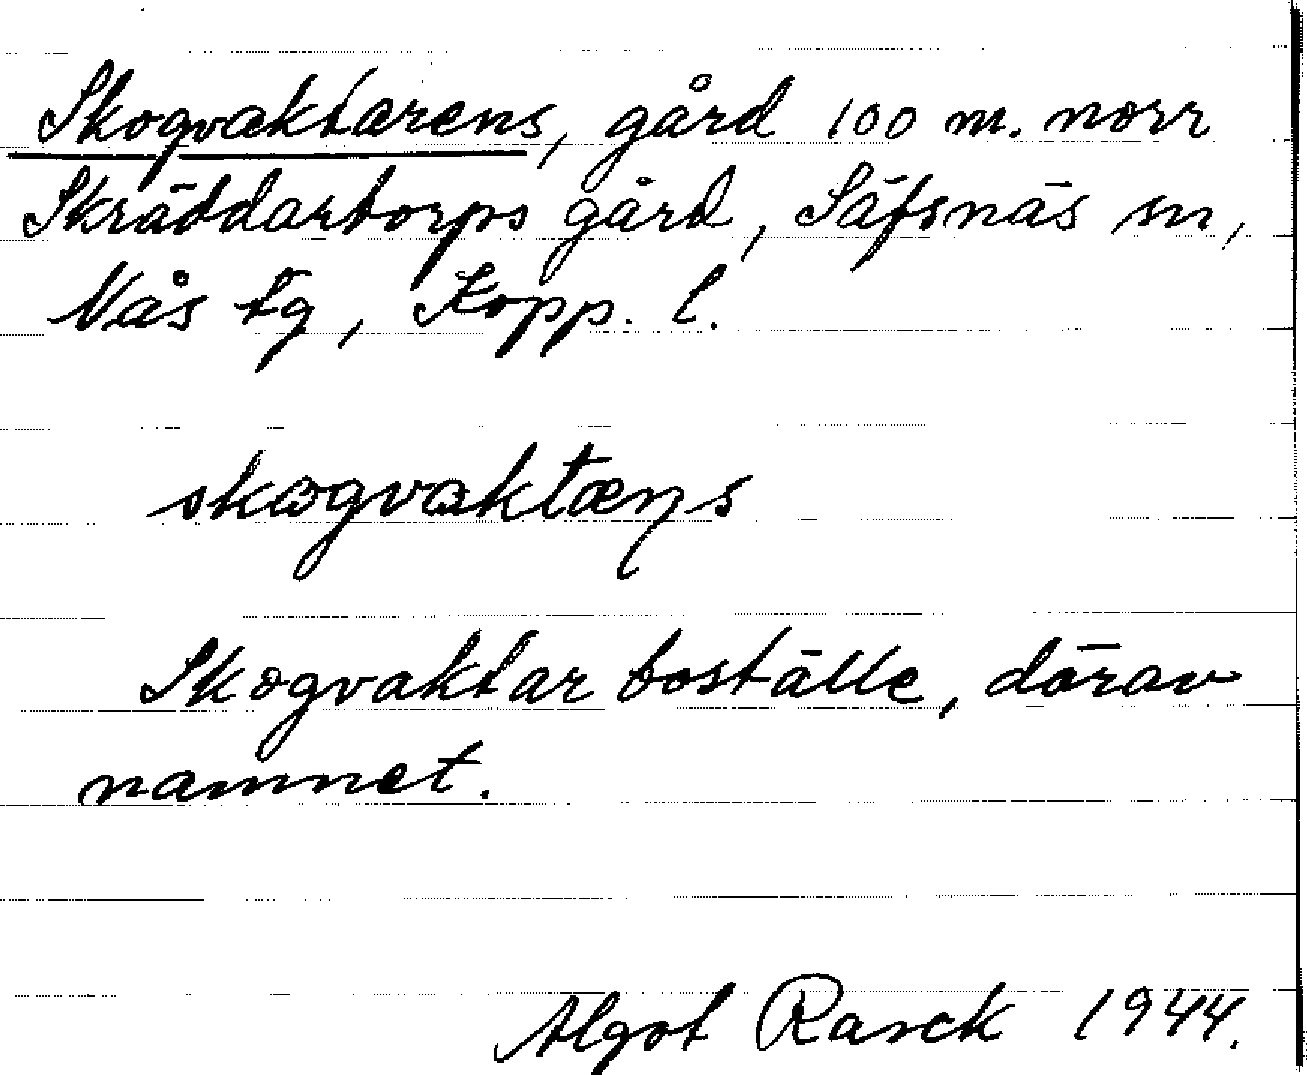 Skogvaktarens, gård 100 m. norr
Skräddartorps gård, Säfsnäs sn,
Nås tg, Kopp. l.
skogvaktæṇs
Skogvaktar boställe, därav
namnet.
Algot Rasck 1944.